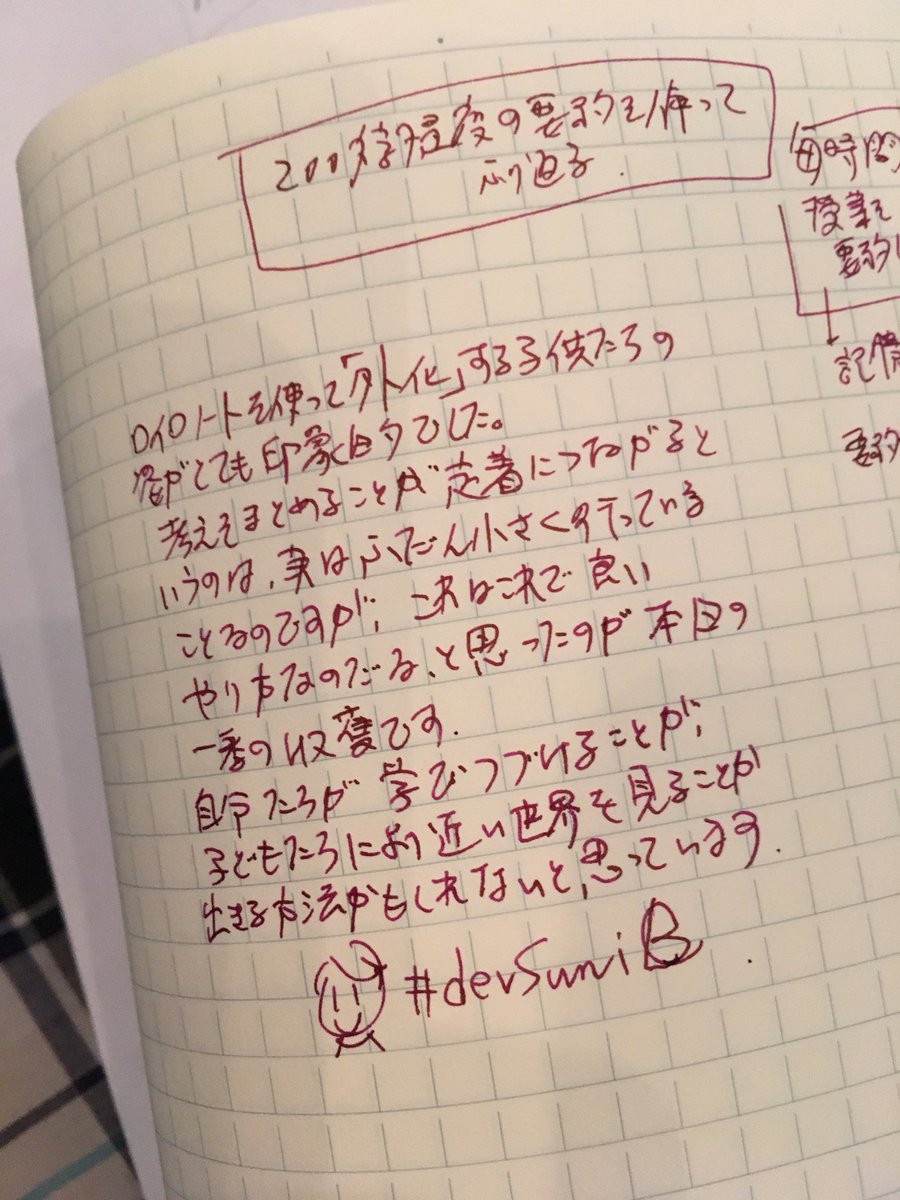 200字程度の要約を使って
ふり返る.
ロイロノートを使って「外化」する子供たちの
姿がとても印象的でした。
考えをまとめることが定着につながると
いうのは、実はふだん小さく行っている
ことなのですが、これはこれで良い
やり方なのだな、と思ったのが本日の
一番の収穫です.
自分たちが学びつづけることが、
子どもたちにより近い世界を見ることが
出来る方法かもしれないと思っています.
#devSumiB
毎時間
授業を
要約し
↓
記憶
要約